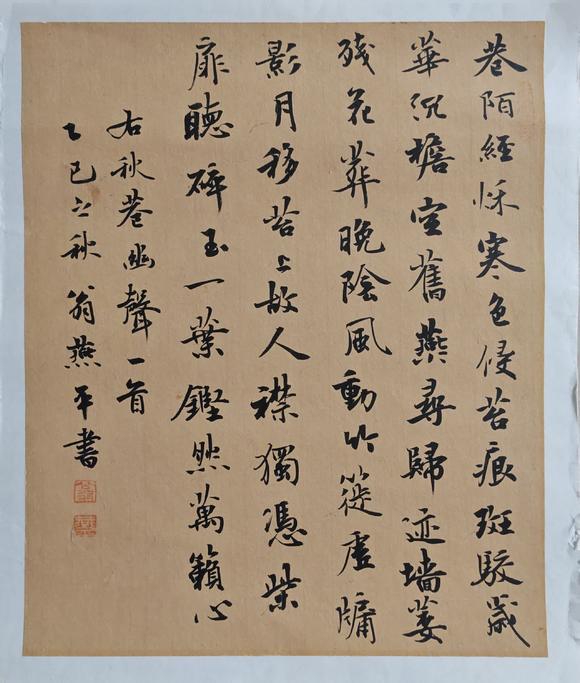 巷陌經秌寒色侵苔痕斑駮歲
華沉檐空舊燕尋歸迹墻萎
殘花葬晚陰風動竹簁虛牖
影月移苔上故人襟獨憑柴
扉聽碎玉一葉鏗然萬籟心
右秋巷幽聲一首
乙巳之秋翁燕平書